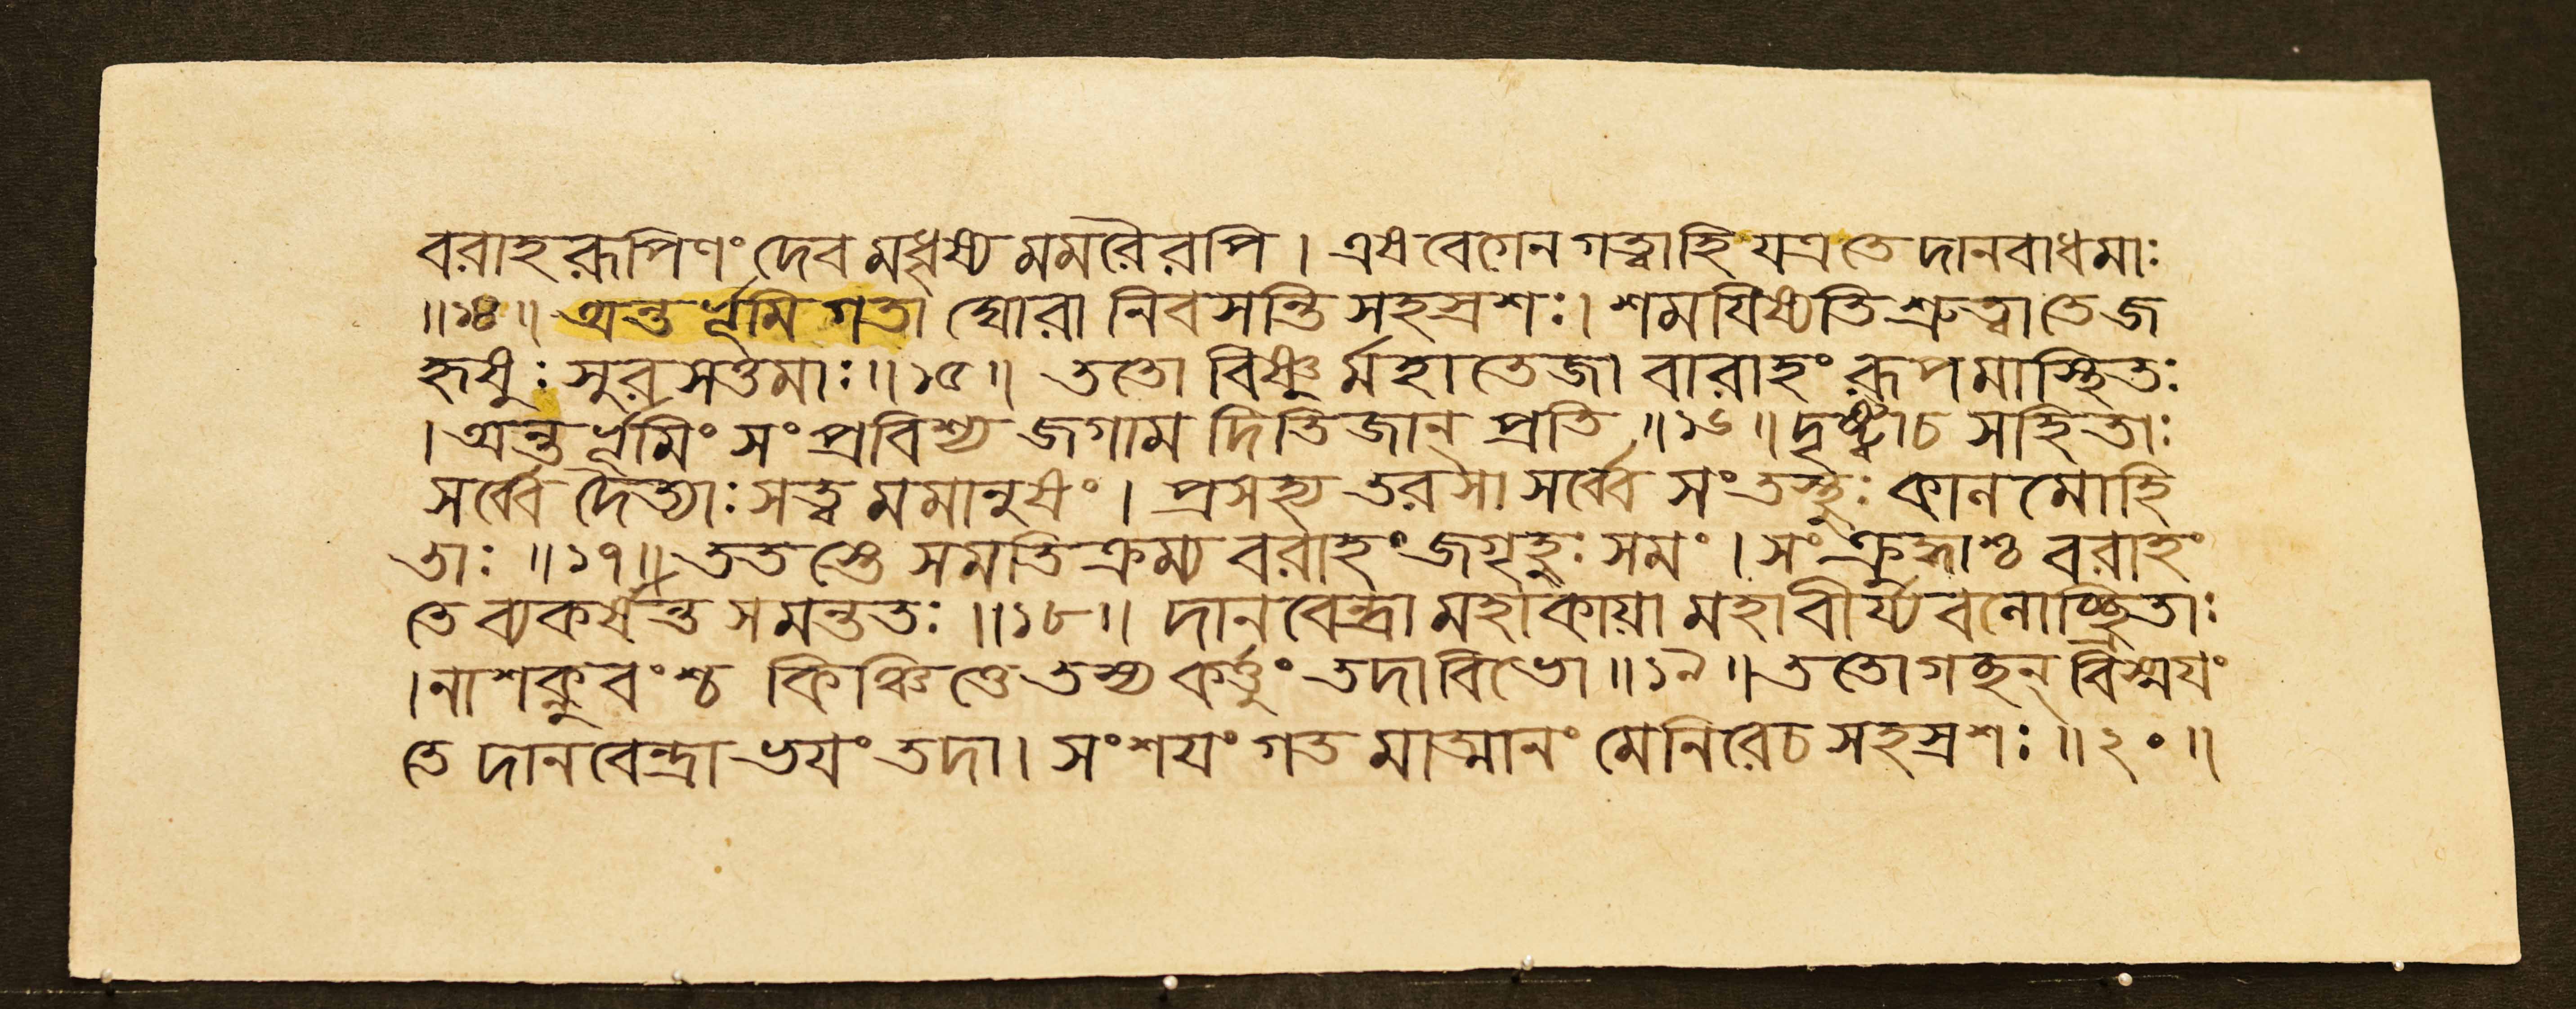 বরাহরূপিণং দেবমধৃষ্যমমরৈরপি । এষ বেগেন গত্বাহি যত্র তে দানবাধমাঃ
॥১৪॥ অন্তর্ভূমিগতা ঘোরা নিবসন্তি সহস্রশঃ। শময়িষ্যতি শ্রুত্বা তে জ
হৃষুঃ সুরসত্তমাঃ॥১৫॥ ততো বিষ্ণুর্মহাতেজা বারাহং রূপমাস্থিতঃ
। অন্তর্ভূমিং সংপ্রবিশ্য জগাম দিতিজান্ প্রতি ॥১৬॥ দৃষ্ট্বাচ সহিতাঃ
সর্ব্বে দৈত্যাঃ সত্ত্বমমানুষং । প্রসহ্য তরসা সর্ব্বে সংতস্থুঃ কালমোহি
তাঃ ॥১৭॥ ততস্তে সমতিক্রম্য বরাহং জগৃহুঃ সমং । সংক্রুদ্ধাশ্চ বরাহং
তে ব্যকর্ষন্ত সমন্ততঃ ॥১৮॥ দানবেন্দ্রা মহাকায়া মহাবীর্য্যবলোচ্ছ্রিতাঃ
। নাশক্নুবংশ্চ কিঞ্চিত্তে তস্য কর্ত্তুং তদা বিভো ॥১৯॥ ততোগচ্ছন্ বিস্ময়ং
তে দানবেন্দ্রা ভয়ং তদা। সংশয়ং গতমাত্মানং মেনিরেচ সহস্রশঃ ॥২০॥